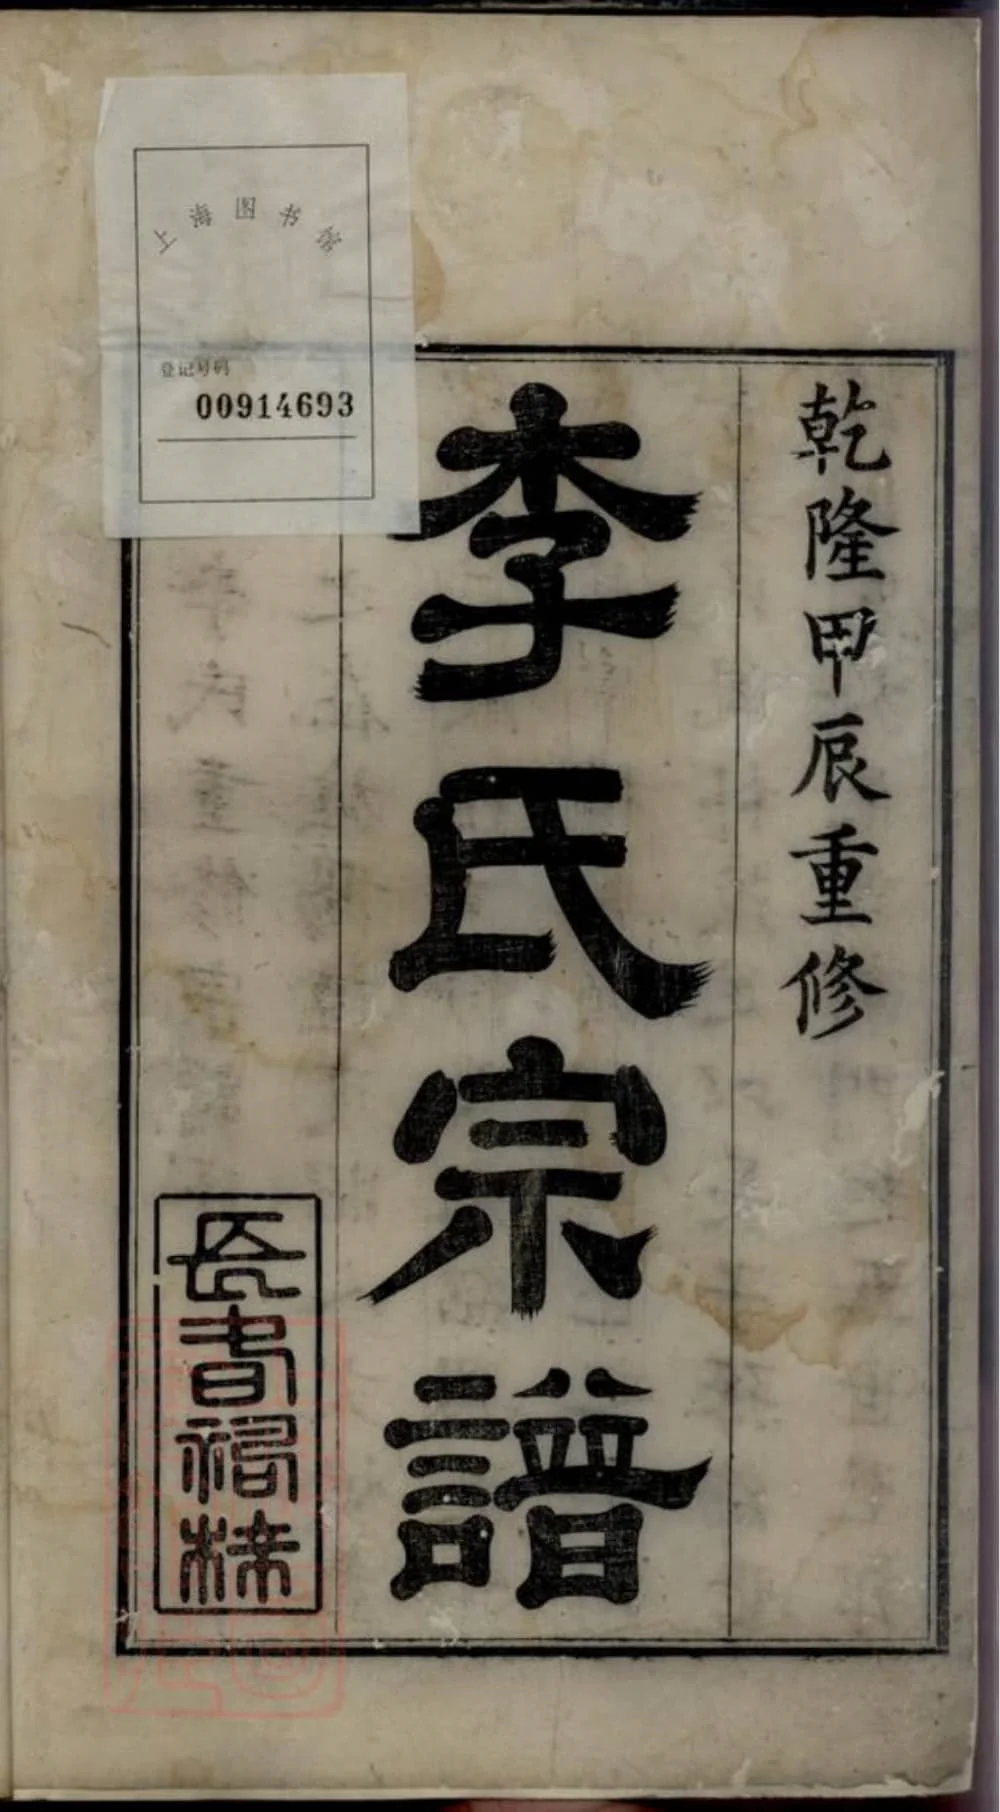 乾隆甲辰重修
李氏宗譜
上海图书馆
登记号码
00914693